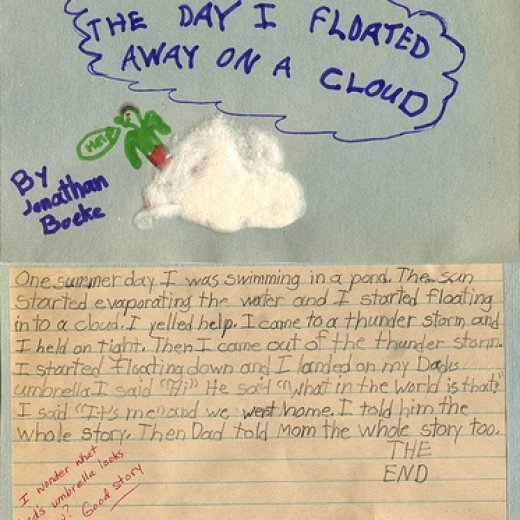 THE DAY I FLOATED
AWAY ON A
CLOUD
HELP
BY
Jonathan
Boeke
One summer day I was swimming in a pond. The sun
started evaporating the water and I started floating
into a cloud. I yelled help. I came to a thunder storm and
I held on tight. Then I came out of the thunder storm.
I started floating down and I landed on my Dads
umbrella I said "Hi" He said "What in the world is that?"
I said "It's me" and we went home. I told him the
whole story. Then Dad told Mom the whole story too.
THE
END
I wonder what
umbrella looks
Good story